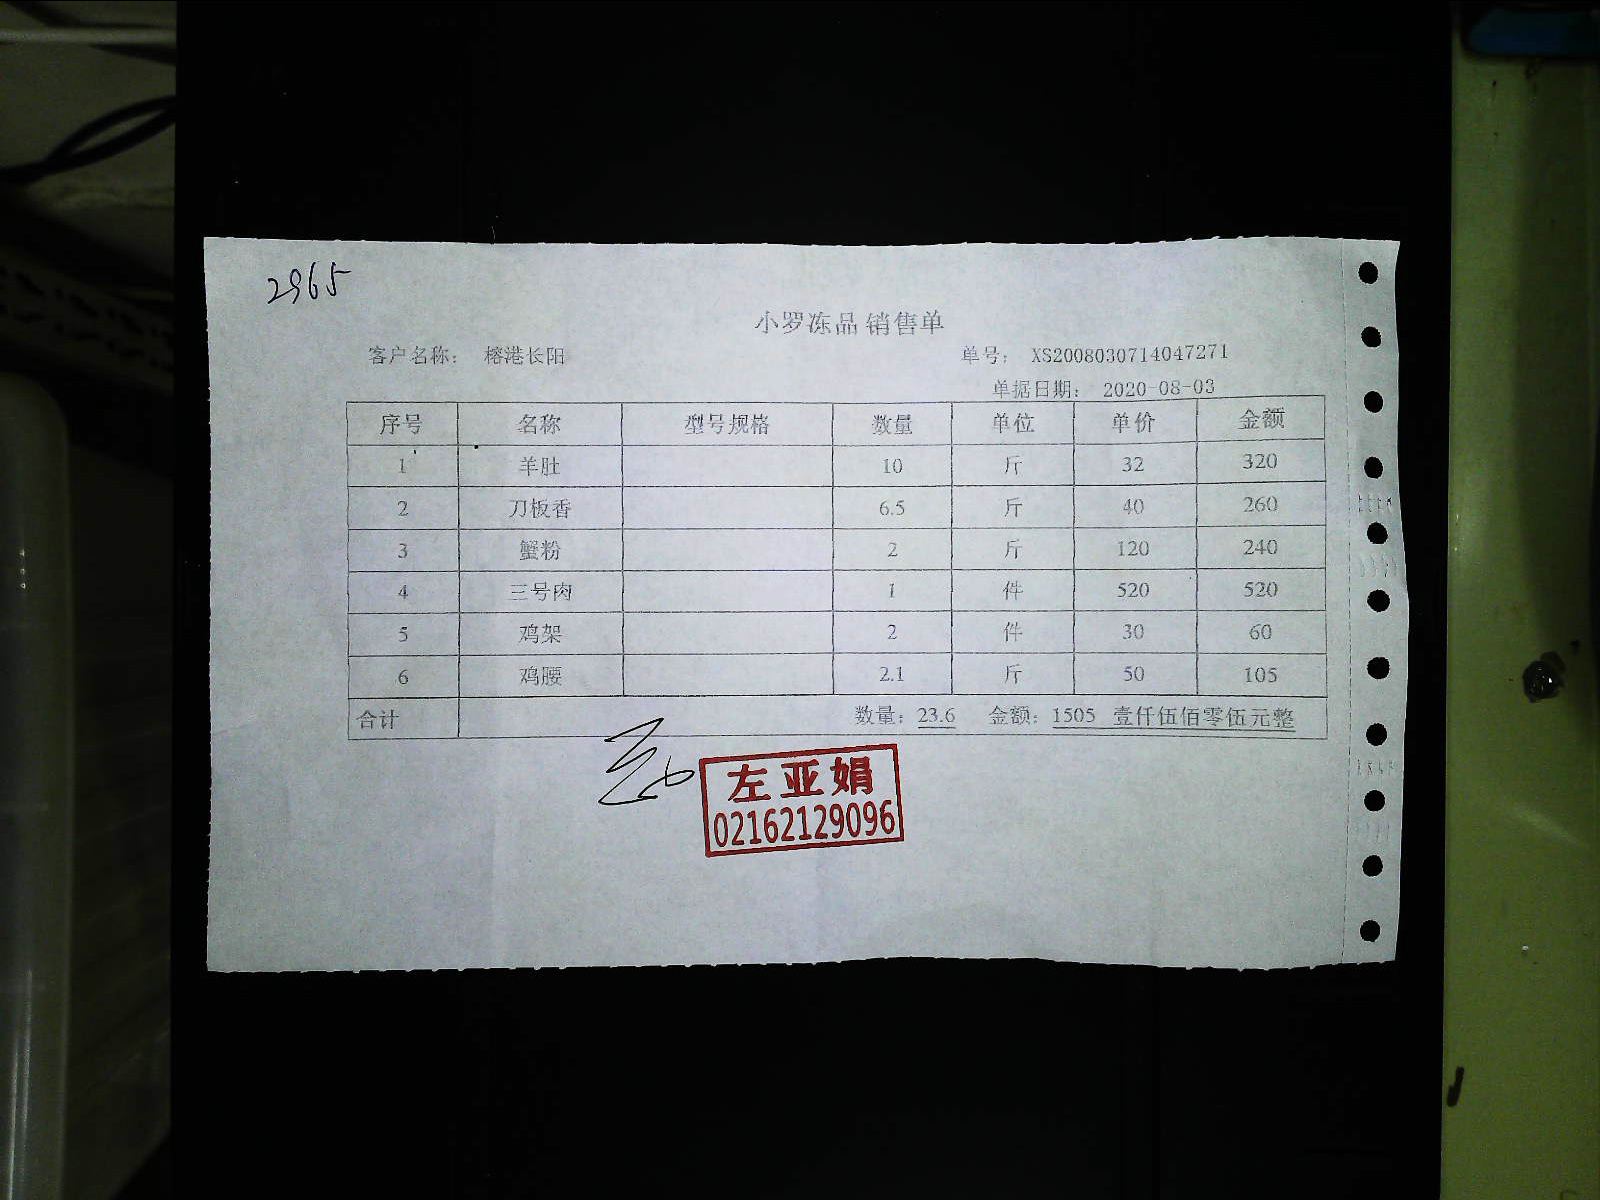 2965
小罗冻品 销售单
客户名称： 榕港长阳 单号： XS2008030714047271
单据日期： 2020-08-03
序号 名称 型号规格 数量 单位 单价 金额
1 羊肚 10 斤 32 320
2 刀板香 6.5 斤 40 260
3 蟹粉 2 斤 120 240
4 三号肉 1 件 520 520
5 鸡架 2 件 30 60
6 鸡腰 2.1 斤 50 105
合计 数量：23.6 金额：1505 壹仟伍佰零伍元整
左亚娟
02162129096